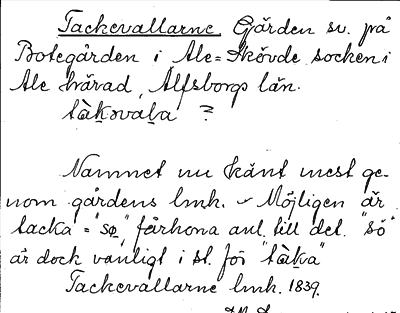 Tackevallarne. Gärden sv. på
Botegården i Ale=Skövde socken i
Ale härad, Älfsborgs län.
tàḵəvaḻa ?
Namnet nu känt mest ge-
nom gårdens lmk. Möjligen är
tacka = "sø", fårhona anl. till det. "sö"
är dock vanligt i st. för "tàḵa"
Tackevallarne lmk. 1839.